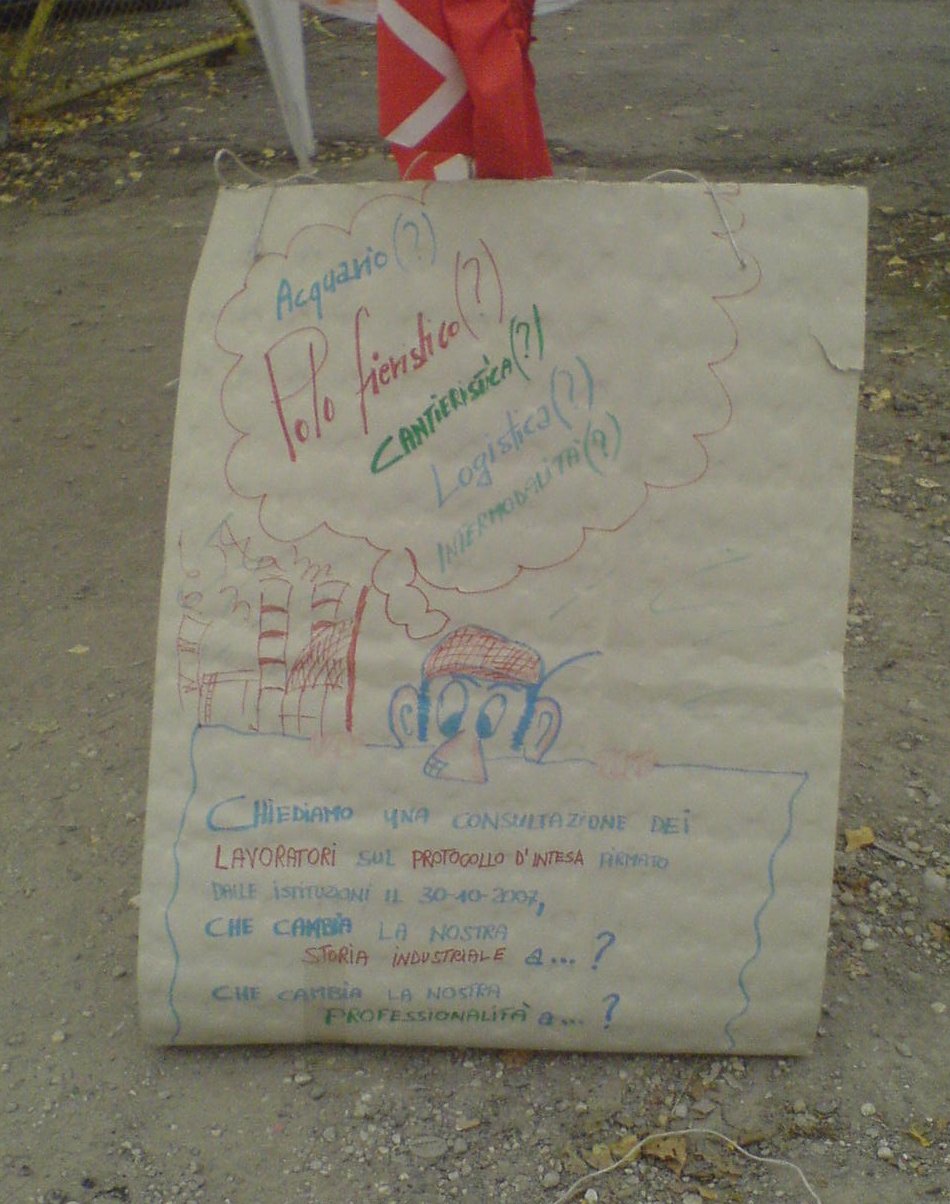 Acquario (?)
Polo fieristico (?)
CANTIERISTICA (?)
Logistica (?)
INTERMODALITÀ (?)
CHIEDIAMO UNA CONSULTAZIONE DEI
LAVORATORI SUL PROTOCOLLO D'INTESA FIRMATO
DALLE ISTITUZIONI IL 30-10-2007,
CHE CAMBIA LA NOSTRA
STORIA INDUSTRIALE a... ?
CHE CAMBIA LA NOSTRA
PROFESSIONALITÀ a... ?